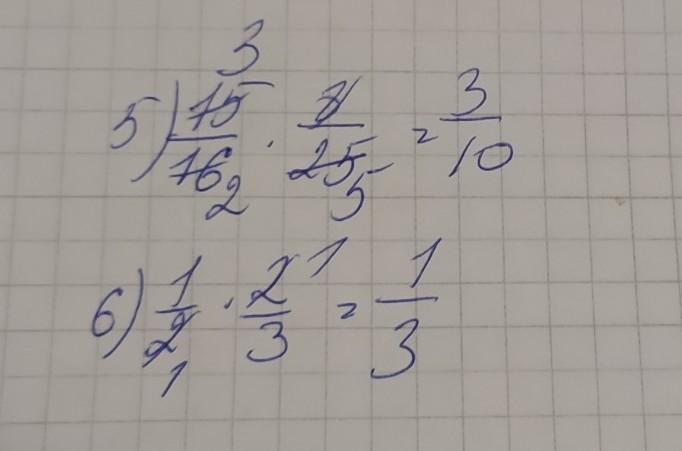 3
5) 15/16 · 8/25 = 3/10
2 5
6) 1/2 · 2/3 = 1/3
1 1